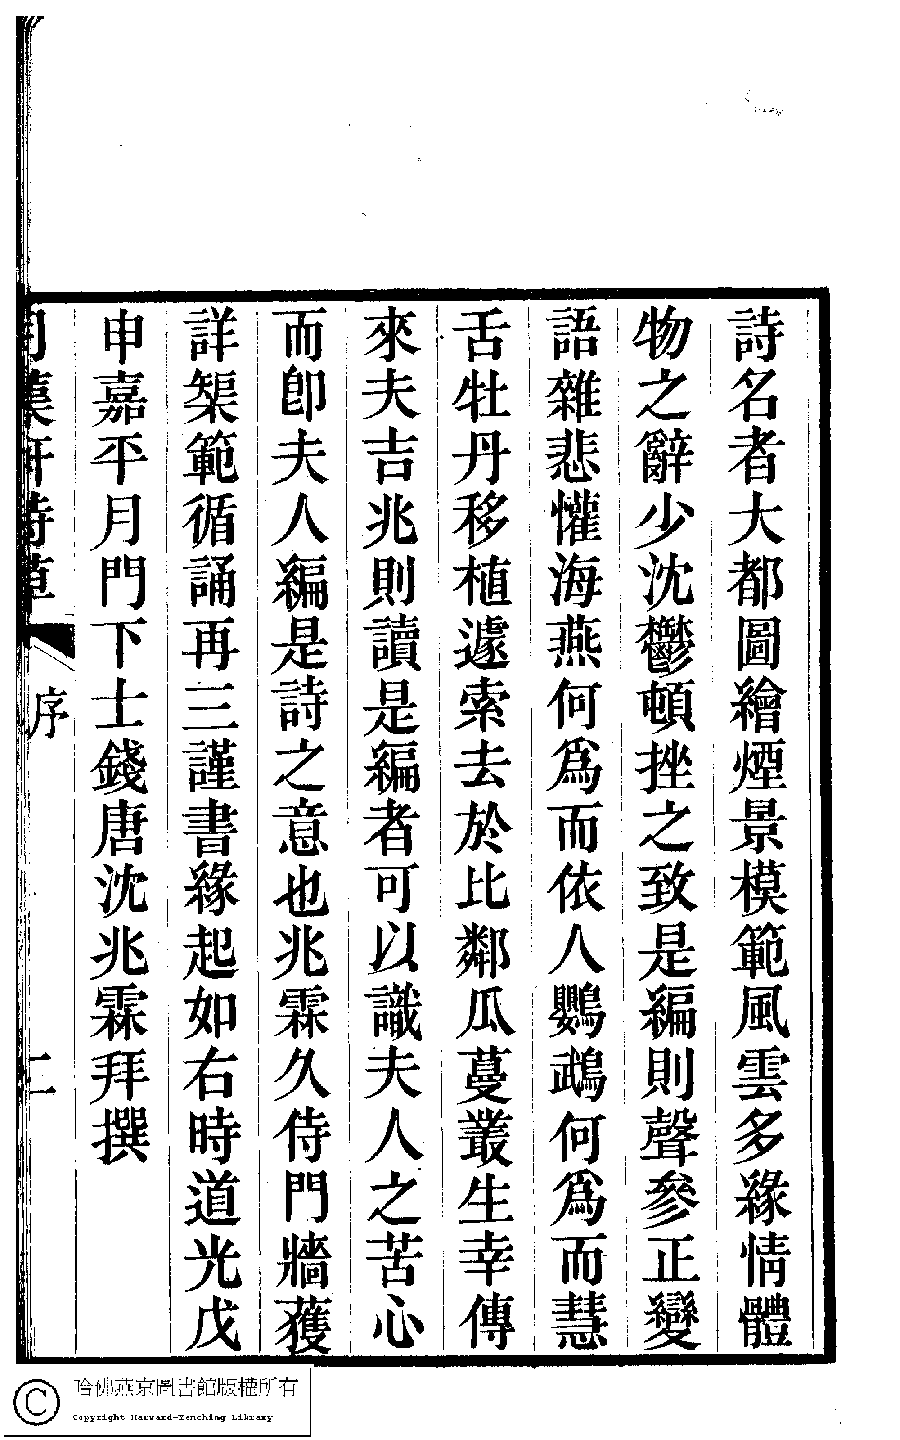 詩名者大都圖繪煙景模範風雲多緣情體
物之辭少沈鬱頓挫之致是編則聲參正變
語雜悲懽海燕何爲而依人鸚鵡何爲而慧
舌牡丹移植遽索去於比鄰瓜蔓叢生幸傳
來夫吉兆則讀是編者可以識夫人之苦心
而卽夫人編是詩之意也兆霖久侍門牆獲
詳榘範循誦再三謹書緣起如右時道光戊
申嘉平月門下士錢唐沈兆霖拜撰
詩草
序
二
哈佛燕京圖書館版權所有
Copyright Harvard-Yenching Library